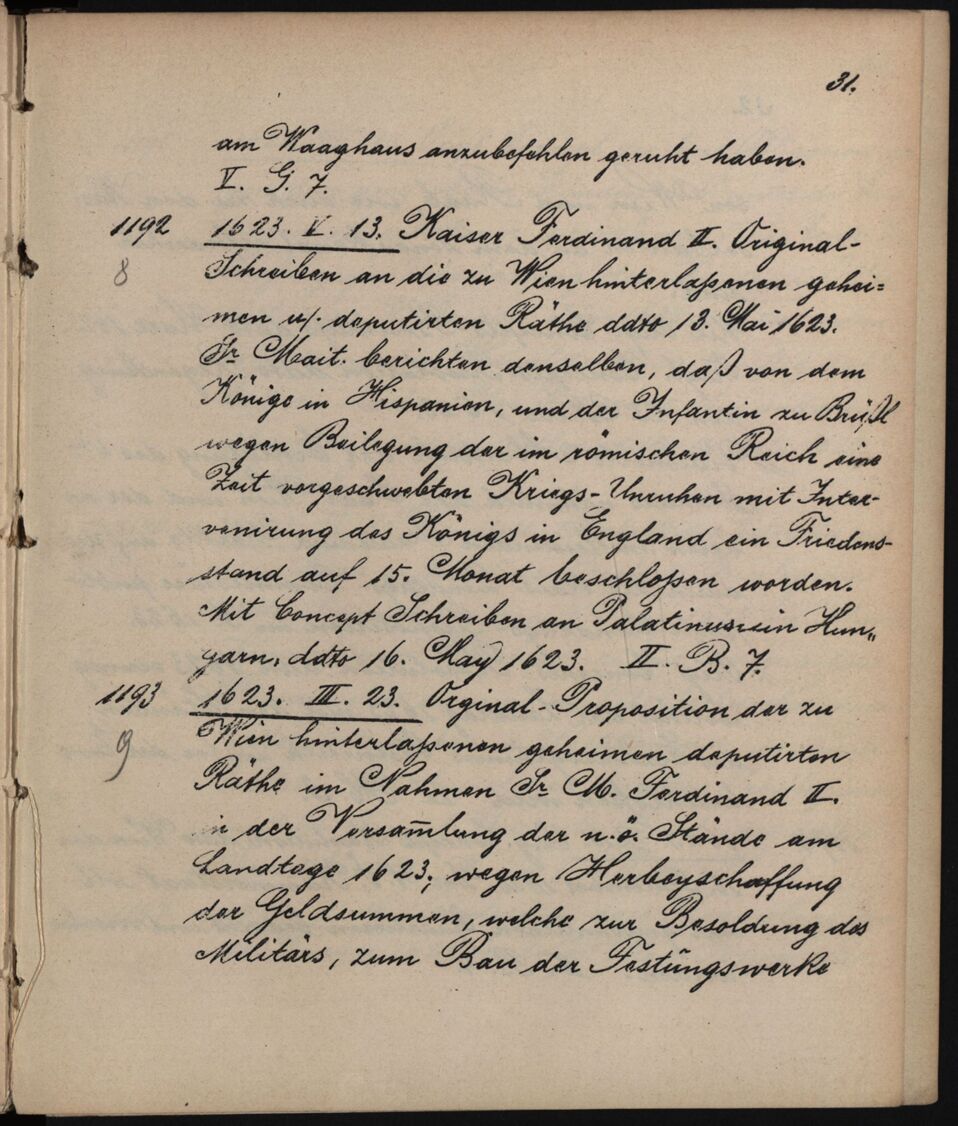 31.
am Waaghaus anzubefehlen geruht haben.
V. G. 7.
1192 1623. V. 13. Kaiser Ferdinand II. Original-
8 Schreiben an die zu Wien hinterlaßenen gehei=
men u/. deputirten Räthe ddto 13. Mai 1623.
Sr Mait. berichten denselben, daß von dem
Könige in Hispanien, und der Infantin zu Brüßl
wegen Beilegung der im römischen Reich eine
Zeit vorgeschwebten Kriegs-Unruhen mit Inter-
venirung des Königs in England ein Friedens-
stand auf 15. Monat beschloßen worden.
Mit Concept Schreiben an Palatinus in Hun„
garn, ddto 16. May 1623. II. B. 7.
1193 1623. III. 23. Orginal-Proposition der zu
9 Wien hinterlaßenen geheimen deputirten
Räthe im Nahmen Sr M. Ferdinand II.
in der Versam̄lung der n.ö. Stände am
Landtage 1623, wegen Herbeyschaffung
der Geldsummen, welche zur Besoldung des
Militärs, zum Bau der Festungswerke